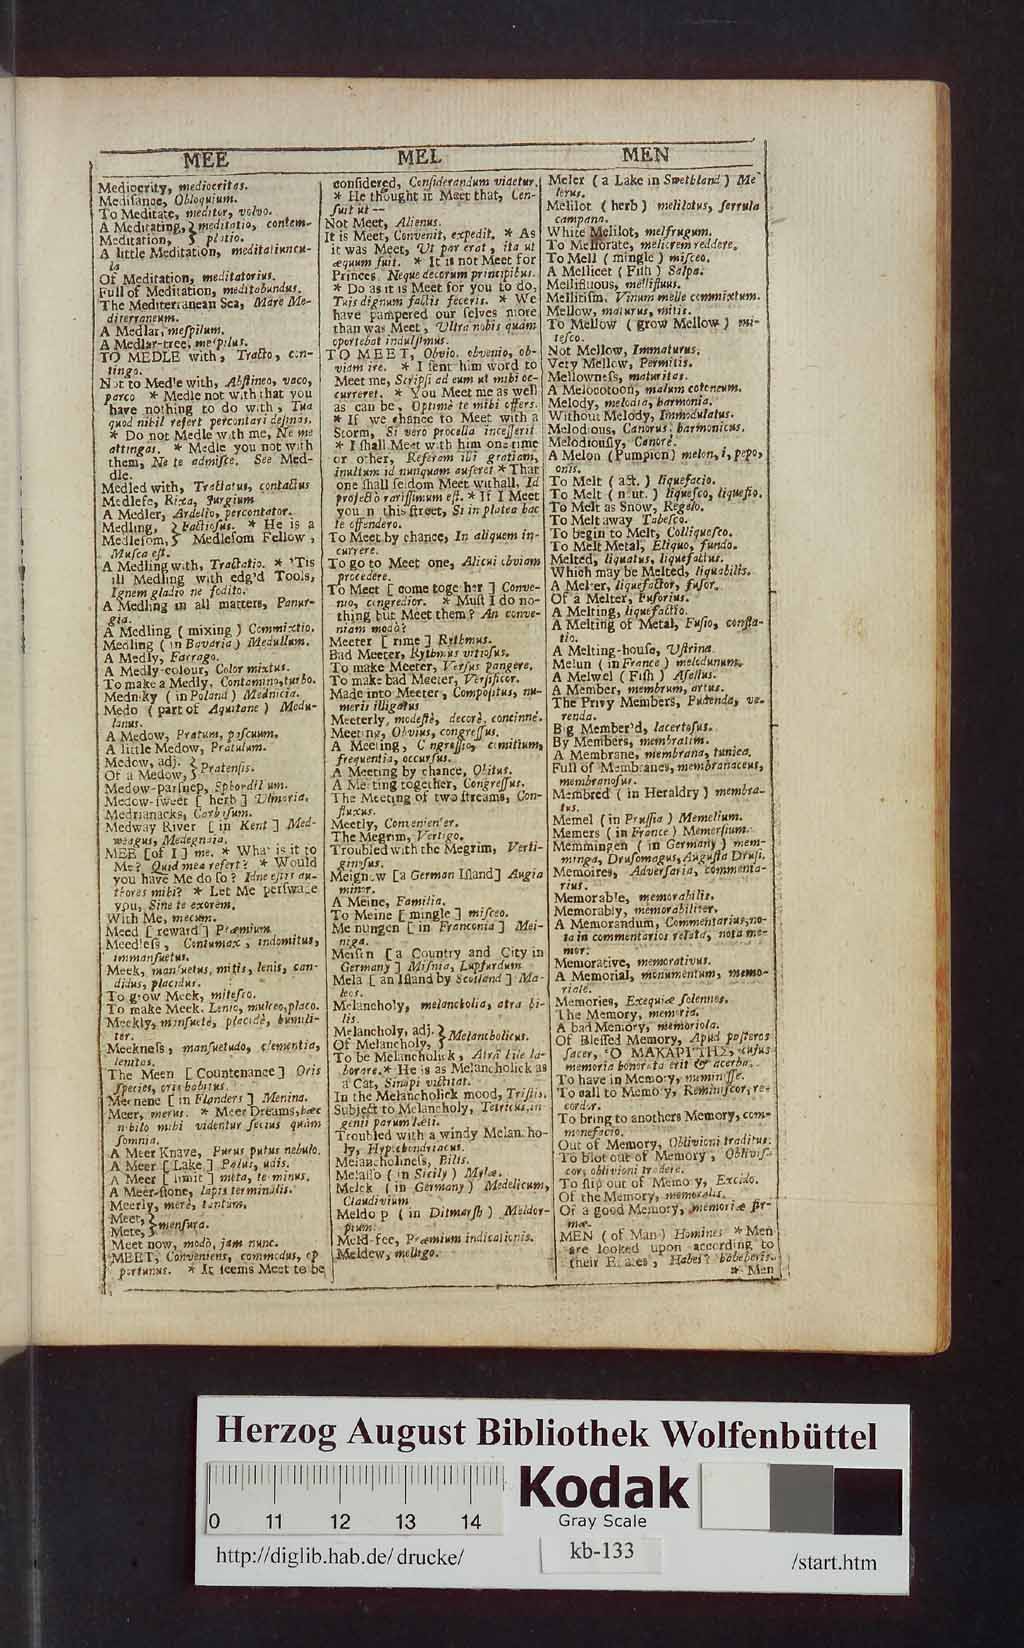 MEE
Mediocrity, mediocritas.
Medisance, Obloquium.
To Meditate, meditor, volvo.
A Meditating, } meditatio, contem-
Meditation, } platio.
A little Meditation, meditatiuncu-
la
Of Meditation, meditatorius.
Full of Meditation, meditabundus.
The Mediterranean Sea, Mare Me-
diterraneum.
A Medlar, mespilum.
A Medlar-tree, mespilus.
TO MEDLE with, Tracto, con-
tingo.
Not to Medle with, Abstineo, vaco,
parco * Medle not with that you
have nothing to do with, Tua
quod nihil refert percontari desinas.
* Do not Medle with me, Ne me
attingas. * Medle you not with
them, Ne te admisce. See Med-
dle.
Medled with, Tractatus, contactus
Medlese, Rixa, Jurgium
A Medler, Ardelio, percontator.
Medling, } factiosus. * He is a
Medlesom, } Medlesom Fellow,
Musca est.
A Medling with, Tractatio. * 'Tis
ill Medling with edg'd Tools,
Ignem gladio ne fodito.
A Medling in all matters, Panur-
gia.
A Medling (mixing) Commixtio.
Medling (in Bavaria) Medullum.
A Medly, Farrago.
A Medly-colour, Color mixtus.
To make a Medly, Contamino, turbo.
Medniky (in Poland) Mednicia.
Medo (part of Aquitane) Medu-
lanus.
A Medow, Pratum, pascuum.
A little Medow, Pratulum.
Medow, adj. } Pratensis.
Of a Medow, }
Medow-parsnep, Sphondilium.
Medow-sweet [herb] Ulmaria.
Medrianacks, Carbasum.
Medway River [in Kent] Med-
weagus, Medegnaia.
MEE [of I] me. * What is it to
Me? Quid mea refert? * Would
you have Me do so? Idne estis au-
thores mihi? * Let Me perswade
you, Sine te exorem.
With Me, mecum.
Meed [reward] Præmium
Meedless, Contumax, indomitus,
immansuetus.
Meek, mansuetus, mitis, lenis, can-
didus, placidus.
To grow Meek, mitesco.
To make Meek, Lenio, mulceo, placo.
Meekly, mansuetè, placidè, humili-
ter.
Meekness, mansuetudo, clementia,
lenitas.
The Meen [Countenance] Oris
species, oris habitus.
Meenene [in Flanders] Menina.
Meer, merus. * Meer Dreams, hæc
nihilo mihi videntur sectus quàm
somnia.
A Meer Knave, Purus putus nebulo.
A Meer [Lake] Palus, udis.
A Meer [limit] meta, terminus.
A Meer-stone, lapis terminalis.
Meerly, merè, tantùm.
Meet, } mensura.
Mete, }
Meet now, modò, jam nunc.
MEET, Conveniens, commodus, op-
portunus. * It seems Meet to be
MEL
considered, Considerandum videtur.
* He thought it Meet that, Cen-
suit ut —
Not Meet, Alienus.
It is Meet, Convenit, expedit. * As
it was Meet, Ut par erat, ita ut
æquum fuit. * It is not Meet for
Princes, Neque decorum principibus.
* Do as it is Meet for you to do,
Tuis dignum factis feceris. * We
have pampered our selves more
than was Meet, Ultra nobis quàm
oportebat indulsimus.
TO MEET, Obvio, obvenio, ob-
viam ire. * I sent him word to
Meet me, Scripsi ad eum ut mihi oc-
curreret. * You Meet me as well
as can be, Optimè te mihi offers.
* If we chance to Meet with a
Storm, Si vero procella incesserit
* I shall Meet with him one time
or other, Referam illi gratiam,
inultum id nunquam auferet * That
one shall seldom Meet withall, Id
profectò rarissimum est. * If I Meet
you in this street, Si in platea hac
te offendero.
To Meet by chance, In aliquem in-
currere.
To go to Meet one, Alicui obviam
procedere.
To Meet [come together] Conve-
nio, congredior. * Must I do no-
thing but Meet them? An conve-
niam modò?
Meeter [rime] Rythmus.
Bad Meeter, Rythmus vitiosus.
To make Meeter, Versus pangere.
To make bad Meeter, Versificor.
Made into Meeter, Compositus, nu-
meris illigatus
Meeterly, modestè, decorè, concinnè.
Meeting, Obvius, congressus.
A Meeting, Congressio, comitium,
frequentia, occursus.
A Meeting by chance, Obitus.
A Meeting together, Congressus.
The Meeting of two streams, Con-
fluxus.
Meetly, Convenienter.
The Megrim, Vertigo.
Troubled with the Megrim, Verti-
ginosus.
Meignow [a German Island] Augia
minor.
A Meine, Familia.
To Meine [mingle] misceo.
Meinungen [in Franconia] Mei-
ninga.
Meisin [a Country and City in
Germany] Misnia, Lupfurdum
Mela [an Island by Scotland] Ma-
leos.
Melancholy, melancholia, atra bi-
lis.
Melancholy, adj. } Melancholicus.
Of Melancholy, }
To be Melancholick, Atrâ bile la-
borare. * He is as Melancholick as
a Cat, Sinapi victitat.
In the Melancholick mood, Tristis.
Subject to Melancholy, Tetricus, in-
genii parum læti.
Troubled with a windy Melancho-
ly, Hypochondriacus.
Melancholiness, Bilis.
Melasso (in Sicily) Mylæ.
Melck (in Germany) Medelicum,
Claudivium
Meldorp (in Ditmarsh) Meldor-
pium.
Meld-fee, Præmium indicationis.
Meldew, mellugo.
MEN
Meler (a Lake in Swethland) Me-
lerus.
Melilot (herb) melilotus, serrula
campana.
White Melilot, melfrugum.
To Meliorate, meliorem reddere.
To Mell (mingle) misceo.
A Mellicet (Fish) Salpa.
Mellifluous, mellifluus.
Mellitism, Vinum melle commixtum.
Mellow, maturus, mitis.
To Mellow (grow Mellow) mi-
tesco.
Not Mellow, Immaturus.
Very Mellow, Permitis.
Mellowness, maturitas.
A Melocotoon, malum cotoneum.
Melody, melodia, harmonia.
Without Melody, Immodulatus.
Melodious, Canorus, harmonicus.
Melodiously, Canorè.
A Melon (Pumpion) melon, i, pepo,
onis.
To Melt (act.) liquefacio.
To Melt (neut.) liquesco, liquefio.
To Melt as Snow, Regelo.
To Melt away Tabesco.
To begin to Melt, Colliquesco.
To Melt Metal, Eliquo, fundo.
Melted, liquatus, liquefactus.
Which may be Melted, liquabilis.
A Melter, liquefactor, fusor.
Of a Melter, Fusorius.
A Melting, liquefactio.
A Melting of Metal, Fusio, confla-
tio.
A Melting-house, Ustrina.
Melun (in France) melodunum.
A Melwel (Fish) Asellus.
A Member, membrum, artus.
The Privy Members, Pudenda, ve-
renda.
Big Member'd, lacertosus.
By Members, membratim.
A Membrane, membrana, tunica.
Full of Membranes, membranaceus,
membranosus.
Membred (in Heraldry) membra-
tus.
Memel (in Prussia) Memelium.
Memers (in France) Memersium.
Memmingen (in Germany) mem-
minga, Drusomagus, Augusta Drusi.
Memoires, Adversaria, commenta-
rius.
Memorable, memorabilis.
Memorably, memorabiliter.
A Memorandum, Commentarius, no-
ta in commentarios relata, nota me-
mor.
Memorative, memorativus.
A Memorial, monumentum, memo-
riale.
Memories, Exequiæ solennes.
The Memory, memoria.
A bad Memory, memoriola.
Of Blessed Memory, Apud posteros
sacer, Ὁ ΜΑΚΑΡΙΤΗΣ, cujus
memoria honorata erit & acerba.
To have in Memory, meminisse.
To call to Memory, Reminiscor, re-
cordor.
To bring to anothers Memory, com-
monefacio.
Out of Memory, Oblivioni traditus.
To blot out of Memory, Oblivis-
cor, oblivioni tradere.
To slip out of Memory, Excido.
Of the Memory, memoralis.
Of a good Memory, memoriæ fir-
mæ.
MEN (of Man) Homines * Men
are looked upon according to
their Estates, Habes? habeberis.
* Men
Herzog August Bibliothek Wolfenbüttel
0 11 12 13 14
Kodak
Gray Scale
http://diglib.hab.de/drucke/
kb-133
/start.htm